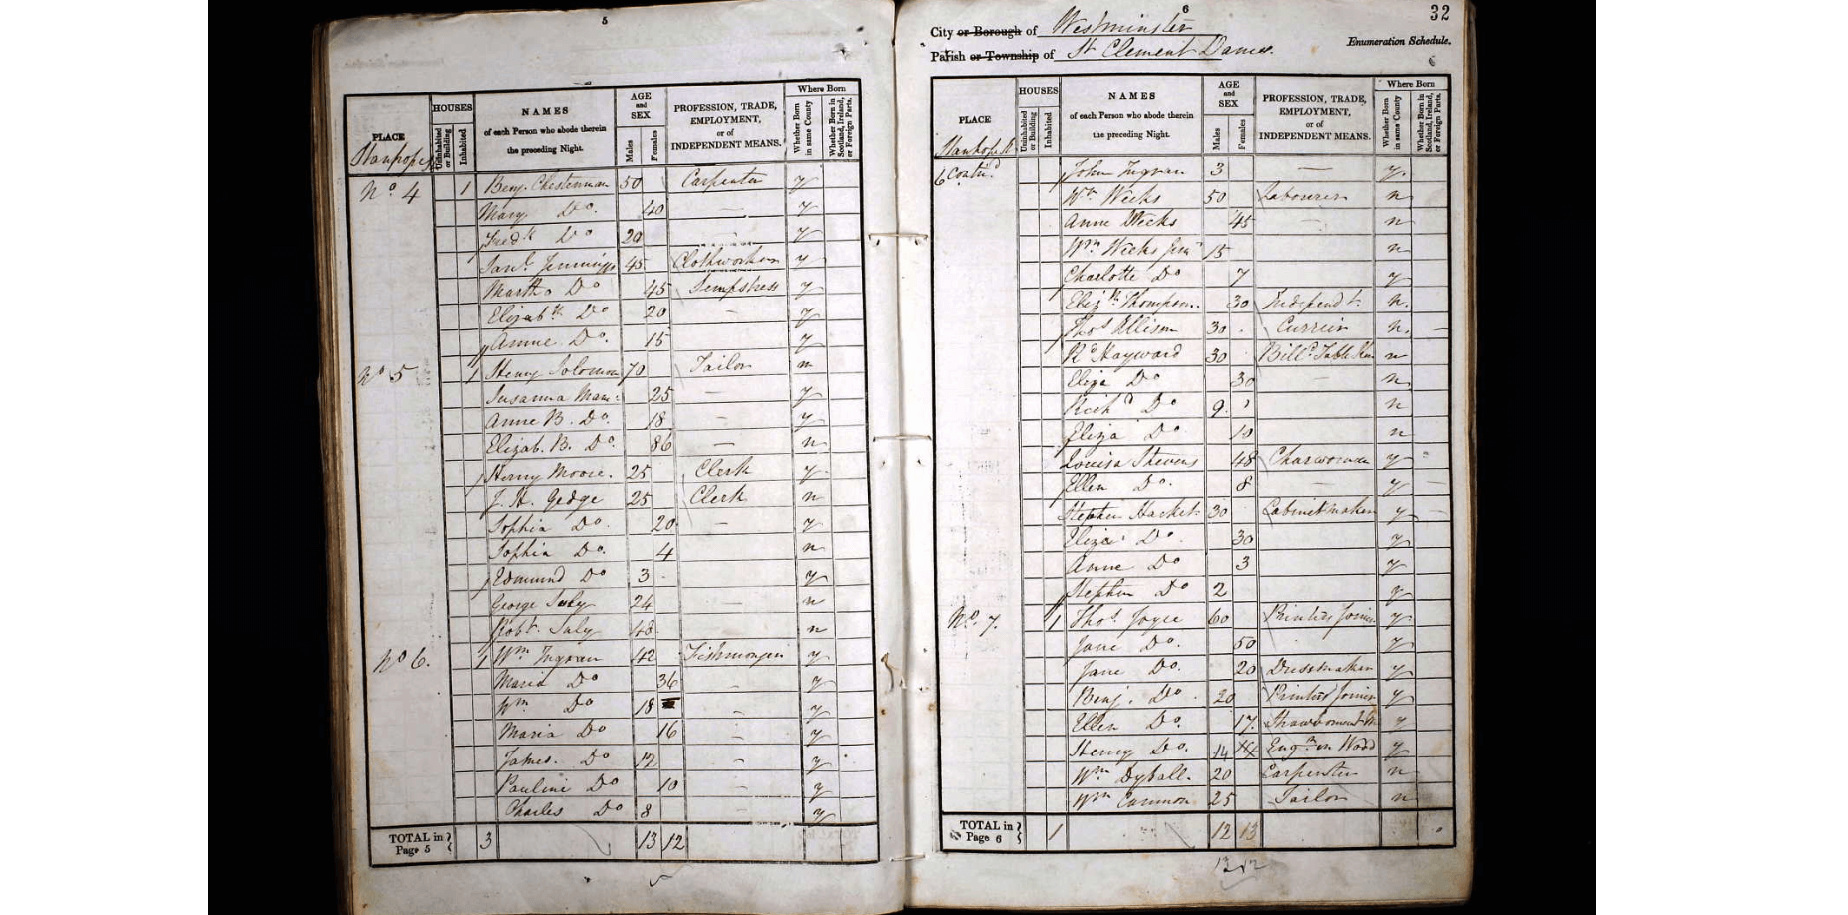 5
PLACE
HOUSES
Uninhabited or Building
Inhabited
NAMES
of each Person who abode therein
the preceding Night.
AGE
and
SEX
Males
Females
PROFESSION, TRADE,
EMPLOYMENT,
or of
INDEPENDENT MEANS.
Where Born
Whether Born in same County
Whether Born in Scotland, Ireland, or Foreign Parts.
Nº 4 1 Benj. Chesterman 50 Carpenter y
Mary Do. 40 — y
Fredk Do 20 y
Saml. Jennings 45 Clothworker y
Martha Do 45 Sempstress y
Elizabth Do 20 - y
Anne Do. 15 y
Nº 5 1 Henry Solomon 70 Tailor n
Susanna 25 — y
Anne B. Do. 18 — y
Elizab. B. Do. 86 — n
Henry Moore. 25 Clerk y
J. H. Gedge 25 Clerk n
Sophia Do. 20 — y
Sophia Do. 4 n
Edmund Do 3 y
George July 24 — n
Robt. July n
Nº 6. 1 Wm Ingram 42 Fishmonger y
Maria Do 36 - y
Wm Do 18 y
Maria Do 16 - y
James. Do 12 - y
Pauline Do 10 - y
Charles Do 8 - y
TOTAL in Page 5 3 13 12
6
32
City or Borough of Westminster
Parish or Township of St Clement Danes.
Enumeration Schedule.
PLACE
Stanhope St
HOUSES
Uninhabited or Building
Inhabited
NAMES
of each Person who abode therein
the preceding Night.
AGE
and
SEX
Males
Females
PROFESSION, TRADE,
EMPLOYMENT,
or of
INDEPENDENT MEANS.
Where Born
Whether Born in same County
Whether Born in Scotland, Ireland, or Foreign Parts.
6 Contd. John Ingram 3 — y.
Wm Weeks 50 Labourer n
Anne Weeks 45 — n
Wm Weeks Junr 15 n
Charlotte Do 7 y
Elizth Thompson. 30 Independt. n.
Thos Allison 30 Currier n.
Rd Hayward 30 n
Eliza Do 30 n
Richd Do 9 n
Eliza Do 10 n
Louisa Stevens 48 Charwoman y
Ellen Do. 8 y
Stephen Hacket 30 Cabinetmaker y
Eliza Do. 30 y
Anne Do 3 y
Stephen Do 2 y
No. 7. 1 Thos. Joyce 60 Printers Joiner y
Jane Do. 50 y
Jane Do. 20 Dressmaker y
Benj. Do. 20 Printers Joiner y
Ellen Do. 17. y
Henry Do. 14 Engr. on Wood y
Wm Dyball. 20 Carpenter n
Wm Cannon 25 Tailor n
TOTAL in Page 6 1 12 13
13 12